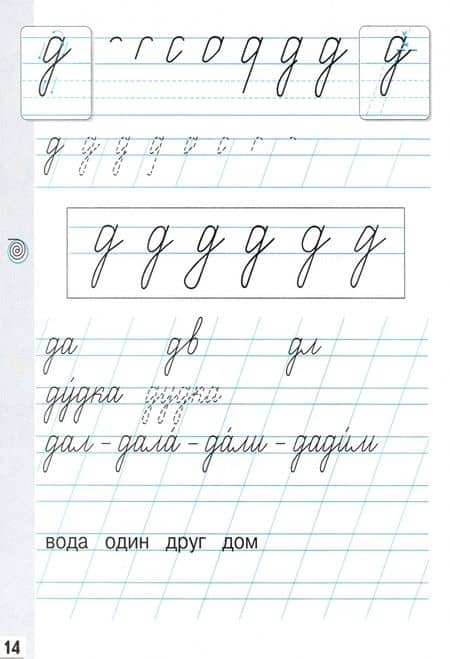 д д д д
д д д
д д д д д д
да дв дл
ду́дка дудка
дал – дала́ – да́ли – дади́м
вода один друг дом
14